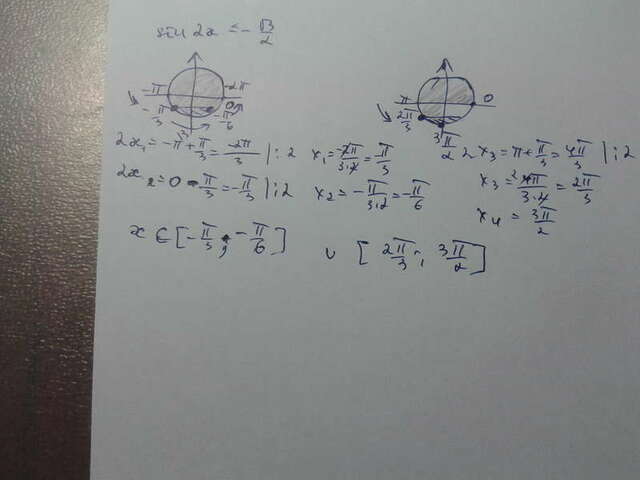 sin 2x ≤ -√3/2
-π -2π 0 -π/3 -π/6
π 0 2π/3 3π/2
2x₁ = -π + π/3 = -2π/3 | : 2 x₁ = -2π/3·2 = π/3 2x₃ = π + π/3 = 4π/3 | : 2
2x₂ = 0 - π/3 = -π/3 | : 2 x₂ = -π/3·2 = -π/6 x₃ = 4π/3·2 = 2π/3
x₄ = 3π/2
x ∈ [-π/3 ; -π/6] ∪ [2π/3 ; 3π/2]